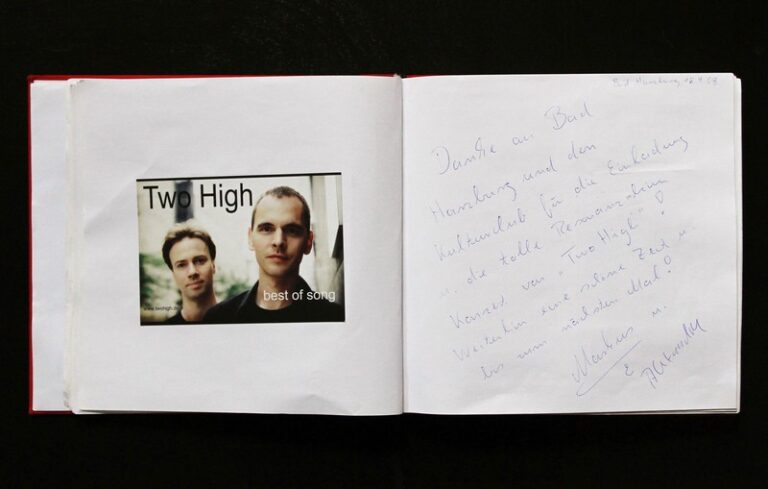 Two High
best of song
www.twohigh.de
Bad Harzburg, 12.4.08
Danke an Bad
Harzburg und den
Kulturclub für die Einladung
u. die tolle Resonanz beim
Konzert von "Two High"!
Weiterhin eine schöne Zeit u.
bis zum nächsten Mal!
Markus u.